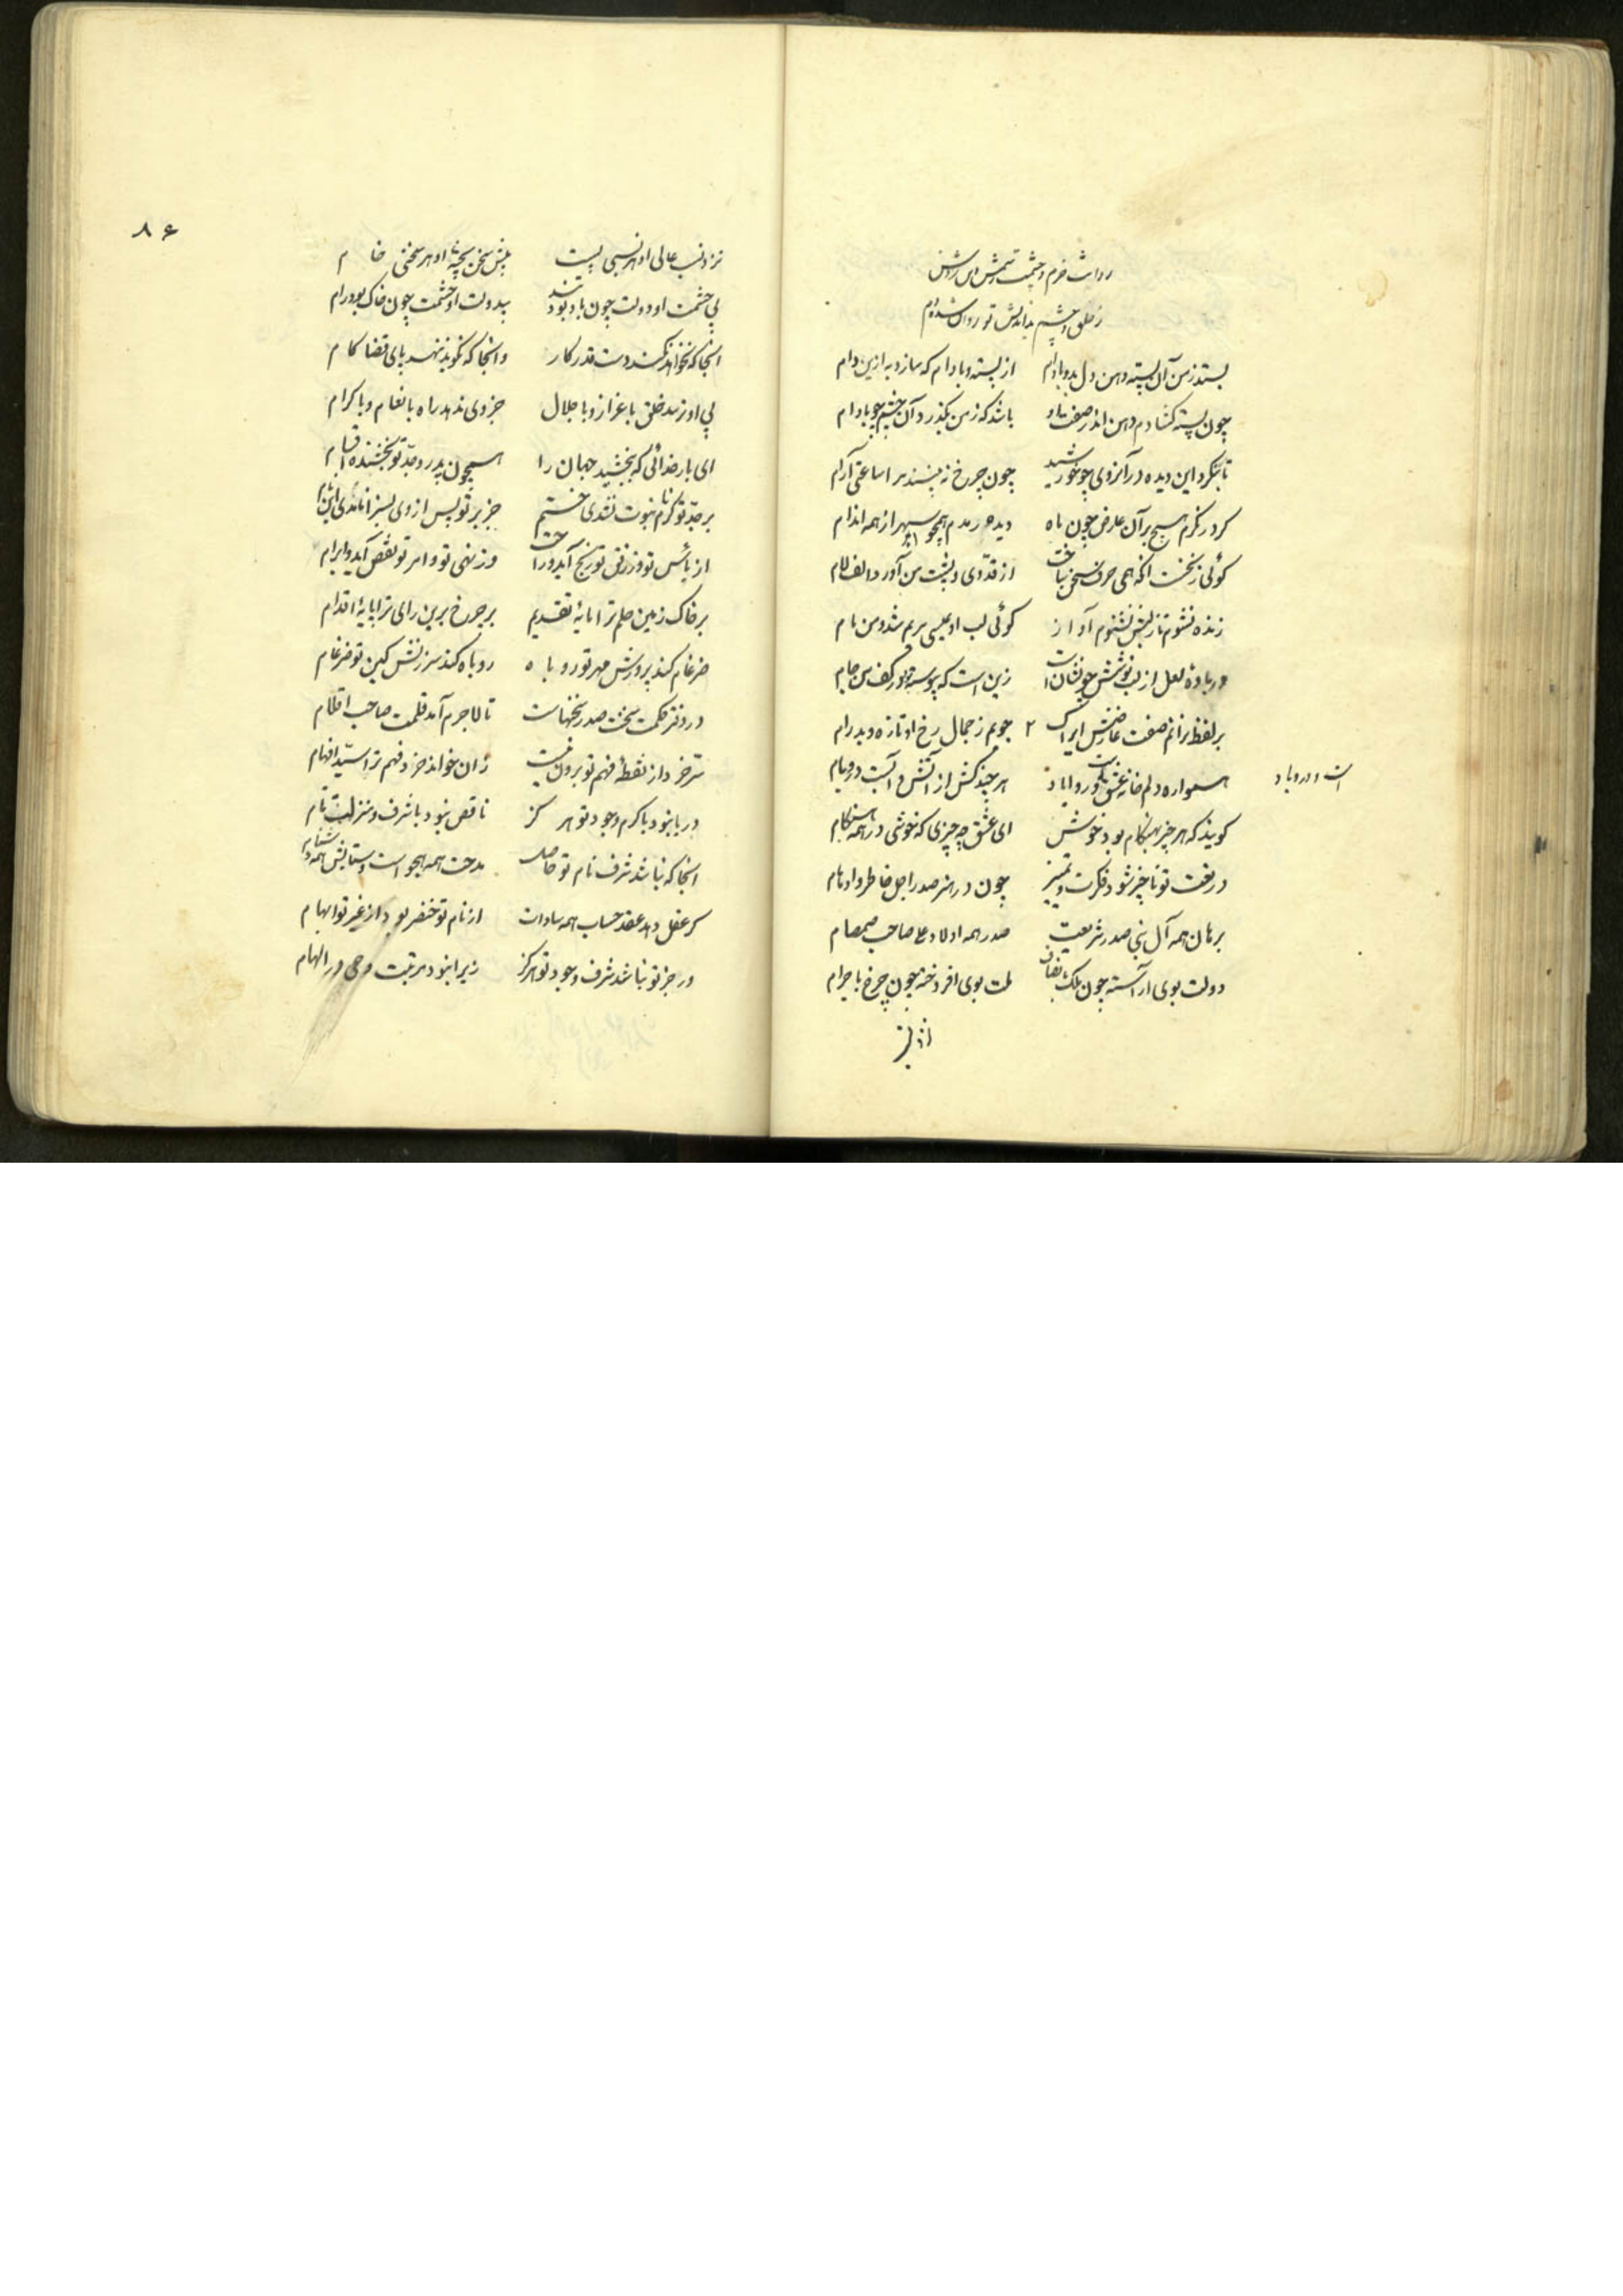 بستد ز من آن پسته دهن دل بدو بادام از پسته و بادام که سازد به ازین دام
چون پسته گشادم دهن اندر صفت او باشد که ز من بگذرد آن چشم چو بادام
تا بنگرد این دیده در آنروی چو خورشید چون چرخ نه بیند مرا ساعتی آرام
کر در نکرم هیچ بر آن عارض چون ماه دیده دمدم همچو سپهر از همه اندام
کوئی ز نخست انکه همی حرف سخن ساخت از قد وی و پشت من آورد الف لام
زنده نشوم تا ز لبش نشنوم آواز کوئی لب او عیسی مریم شد و من
در باده لعل از لب نوشش چو نشان است زین است که پیوسته بود بر کف من جام
بر لفظ برانم صفت عارضش ایراک ۲ جویم ز جمال رخ او تازه و پدرام
همواره دلم خانه عشق هر چند کش از آتش و آبست در و بام
است و
کویند که هر چیز بهنکام بود خوش ای عشق چه چیزی که خوشی در همه هنکام
در نعت تو ناچیز شود فکرت و تمییز چون در هنر صدر اجل خاطر و اوهام
برهان همه آل نبی صدر شریعت صدر همه اولاد علی صاحب صمصام
دولت بوی آراسته چون ملک ملت بوی افروخته چون چرخ باجرام
۸۶
نزد نسب عالی او هر نسبی پست پیش سخن پخته او هر سخنی خام
بی حشمت او دولت چون باد بود تند بیدولت او حشمت چون خاک بود رام
انجا که نخواهد نکند دست قدر کار وانجا که نکوید ننهد پای قضا کام
بی او نرسد خلق باعزاز و باجلال جز وی ندهد راه بانعام و باکرام
ای بار خدائی که ببخشید جهان را همچون پدر و جد تو بخشنده اقسام
بر جد تو کرنام نبوت نشدی ختم جز بر تو پس از وی
از بأس تو و رفق تو رنج آید و راحت وز نهی تو و امر تو نقض آید و ابرام
بر خاک زمین حلم ترا مایه تقدیم بر چرخ برین رای ترا پایه اقدام
ضرغام کند پرورش مهر تو روباه روباه کند سرزنش کین تو ضرغام
در دفتر حکمت سخنت صدر سخنهاست تا لاجرم آمد قلمت صاحب اقلام
سر خرد از نقطه فهم تو برون نیست زان خواند خرد فهم ترا سید افهام
دریا نبود با کرم وجود تو هر کز ناقص نبود با شرف و منزلت تام
انجا که نباشد شرف نام تو حاصل مدحت همه هجو است و ستایش همه دشنام
کر عقل دهد عقد حساب همه سادات از نام تو خنصر بود از غیر تو ابهام
ور جز تو نباشد شرف وجود تو هرکز زیرا نبود مرتبت وحی در الهام